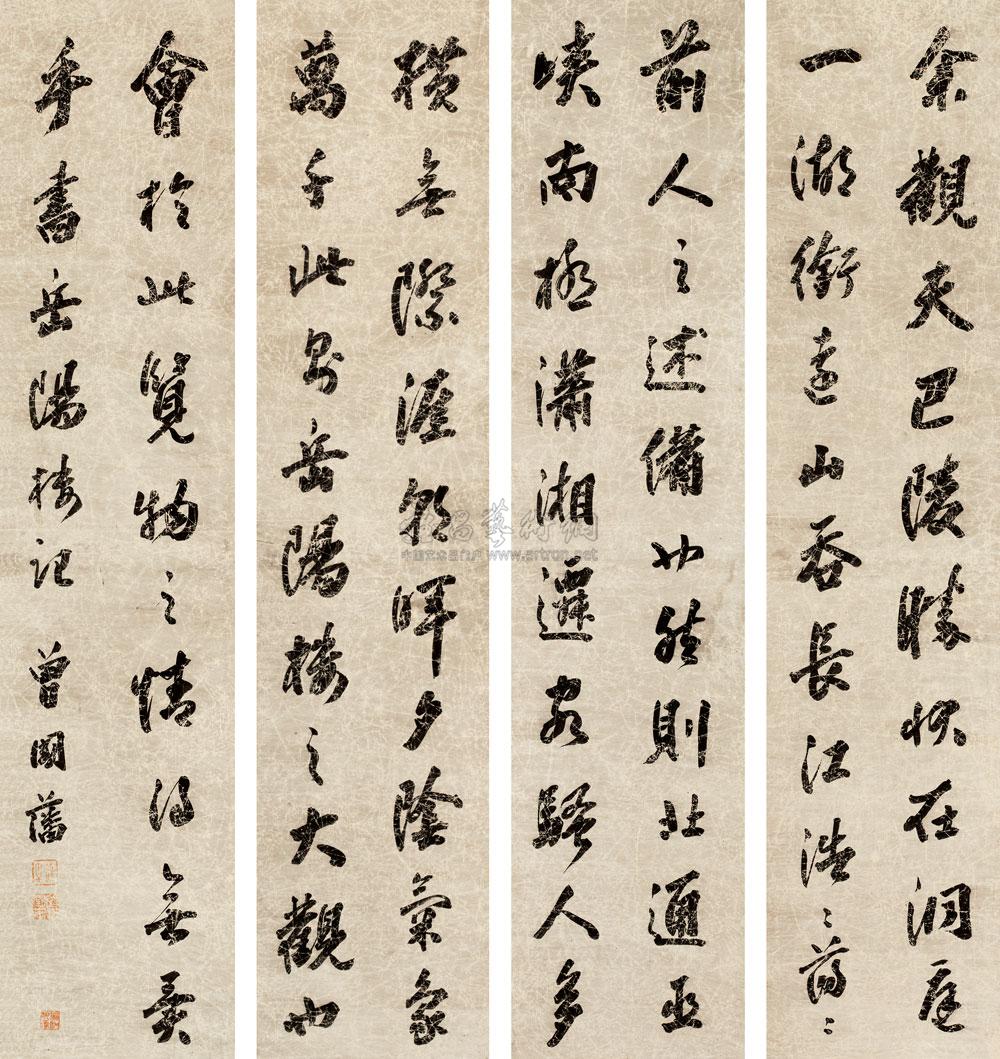 余觀夫巴陵勝狀在洞庭
一湖銜遠山吞長江浩〻蕩〻
前人之述備也然則北通巫
峽南極瀟湘遷客騷人多
橫無際涯朝暉夕陰氣象
萬千此則岳陽樓之大觀也
會於此覽物之情得無異
乎書岳陽樓記 曾國藩
雅昌藝術網
www.artron.net